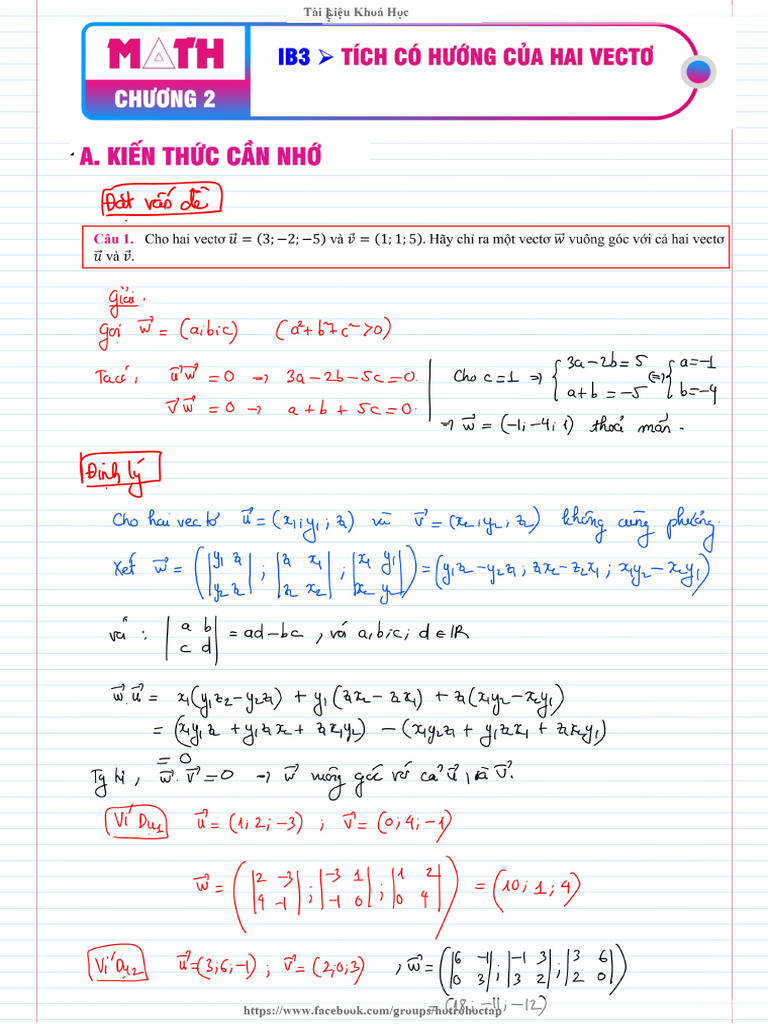 Tài Liệu Khoá Học
MATH
CHƯƠNG 2
IB3 ➢ TÍCH CÓ HƯỚNG CỦA HAI VECTƠ
A. KIẾN THỨC CẦN NHỚ
Đặt vấn đề
Câu 1. Cho hai vectơ u⃗ = (3; −2; −5) và v⃗ = (1; 1; 5). Hãy chỉ ra một vectơ w⃗ vuông góc với cả hai vectơ
u⃗ và v⃗.
Giải.
Gọi w⃗ = (a;b;c) (a²+b²+c²>0)
Ta có, u⃗w⃗ = 0 → 3a−2b−5c=0.
v⃗w⃗ = 0 → a+b+5c=0.
Cho c=1 ⇒ { 3a−2b=5 ; a+b=−5 ⇔ { a=−1 ; b=−4
→ w⃗ = (−1; −4; 1) thoả mãn.
Định lý
Cho hai vectơ u⃗=(x₁; y₁; z₁) và v⃗=(x₂; y₂; z₂) không cùng phương.
Xét w⃗ = (|y₁ z₁; y₂ z₂| ; |z₁ x₁; z₂ x₂| ; |x₁ y₁; x₂ y₂|) = (y₁z₂−y₂z₁ ; z₁x₂−z₂x₁ ; x₁y₂−x₂y₁)
với : |a b; c d| = ad−bc , với a,b,c, d∈ℝ
w⃗.u⃗ = x₁(y₁z₂−y₂z₁) + y₁(z₁x₂−z₂x₁) + z₁(x₁y₂−x₂y₁)
= (x₁y₁z₂ + y₁z₁x₂ + z₁x₁y₂) − (x₁y₂z₁ + y₁z₂x₁ + z₁x₂y₁)
= 0
Tg tự, w⃗.v⃗=0 → w⃗ vuông góc với cả u⃗, và v⃗.
Ví Dụ1 u⃗ = (1; 2; −3) ; v⃗ = (0; 4; −1)
w⃗ = (|2 −3; 4 −1| ; |−3 1; −1 0| ; |1 2; 0 4|) = (10; 1; 4)
Ví Dụ2 u⃗=(3;6;−1) ; v⃗=(2;0;3) , w⃗=(|6 −1; 0 3| ; |−1 3; 3 2| ; |3 6; 2 0|)
= (18; −11; −12)
https://www.facebook.com/groups/hotrohoctap